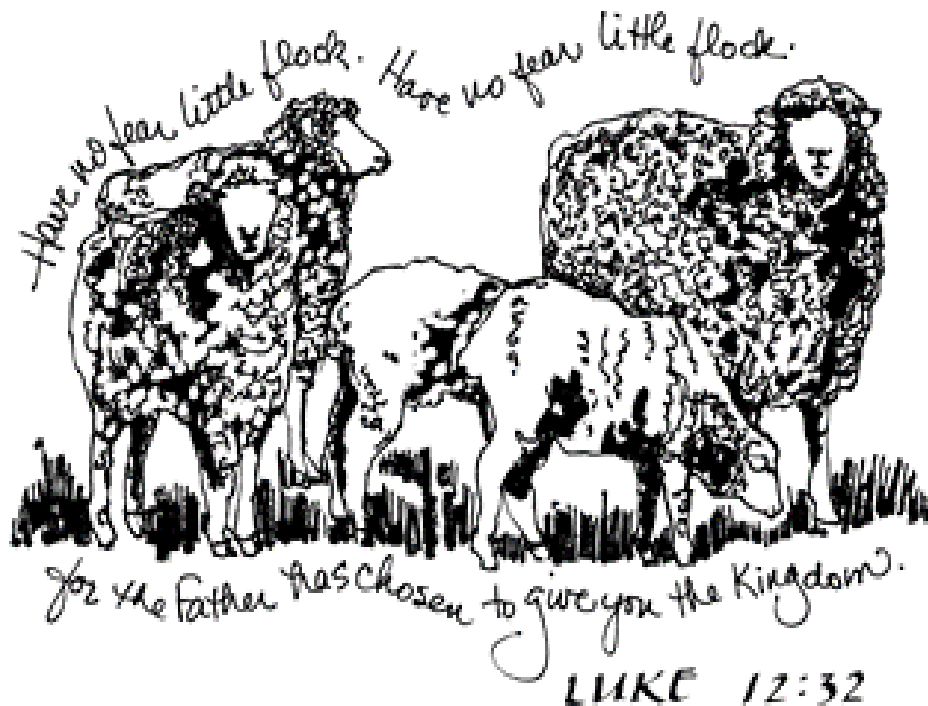 Have no fear little flock. Have no fear little flock.
for the Father has chosen to give you the Kingdom.
LUKE 12:32